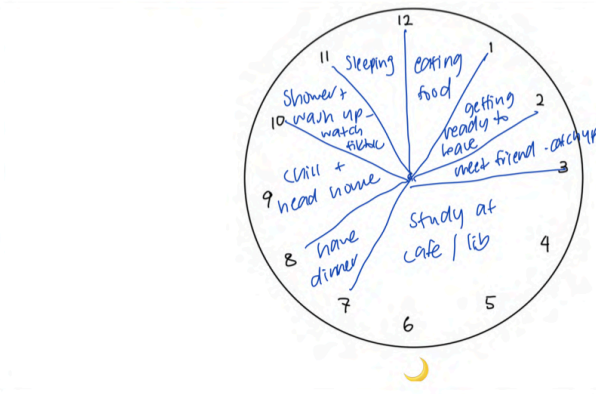 12
1
2
3
4
5
6
7
8
9
10
11
eating
food
getting
ready to
leave
meet friend - catchup
Study at
cafe / lib
have
dinner
chill +
head home
Shower +
wash up -
watch
tiktok
Sleeping